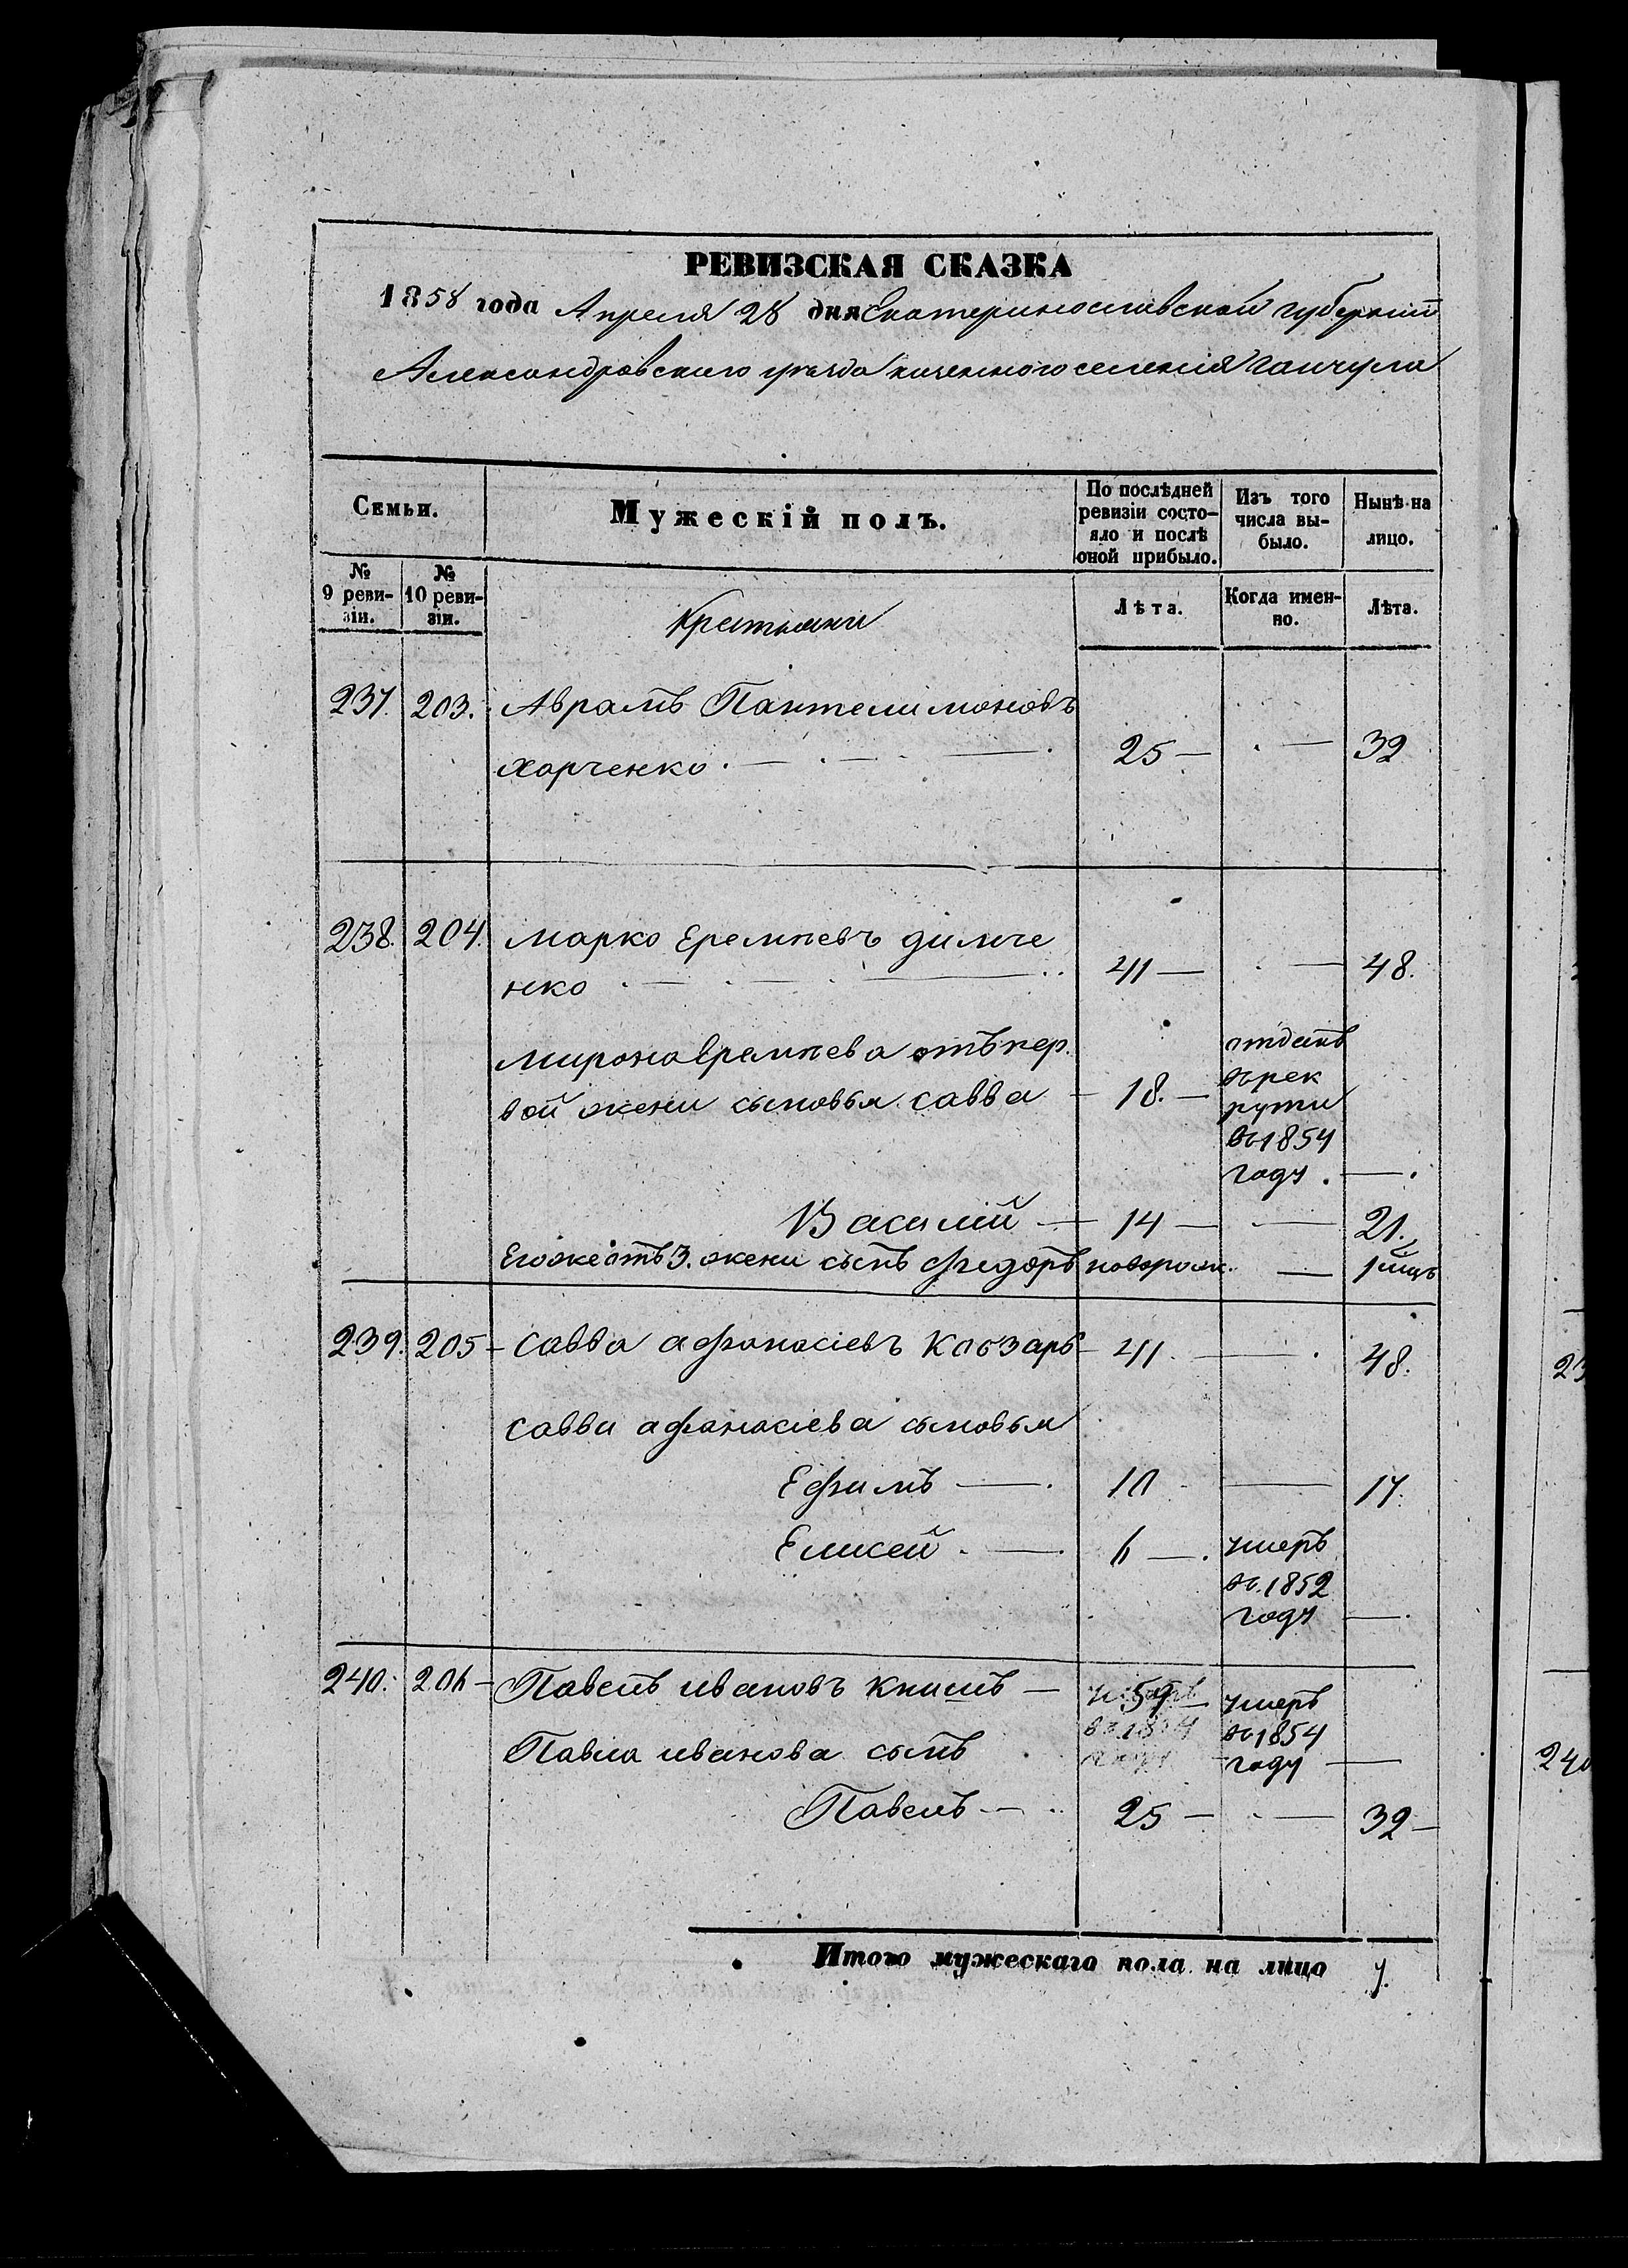 РЕВИЗСКАЯ СКАЗКА
1858 года Апреля 28 дня Екатеринославской губернии
Александровского уезда казенного селения Гайчула
Семьи.
Мужескій полъ.
По послѣдней ревизіи состо-
яло и послѣ
оной прибыло.
Изъ того
числа вы-
было.
Нынѣ на
лицо.
№
9 реви-
зіи.
№
10 реви-
зіи.
Крестьяне
Лѣта.
Когда имен-
но.
Лѣта.
237. 203. Аврамъ Пантелимоновъ
Харченко 25 — — 32
238. 204. Марко Еремѣевъ Димче
нко 41 — — 48.
Мирона Еремѣева отъ пер
вой жени сыновья Савва — 18. — отданъ
въ рек
рути
въ 1854
году. — .
Василій — 14 — — 21.
Его же отъ 3. жени сынъ Фiедоръ новорож. — 1 мцъ
239. 205 — Савва Афанасіевъ Кобзарь — 41. — 48.
Савви Афанасіева сыновья
Ефимъ — . 10 — 17.
Елисей . — . 6 — . умеръ
въ 1852
году — .
240. 206 — Павелъ Ивановъ Книшъ — 59 — умеръ
въ 1854
году —
Павла Иванова сынъ
Павелъ — 25 — — 32 —
Итого мужескаго пола на лицо 7.
23
240